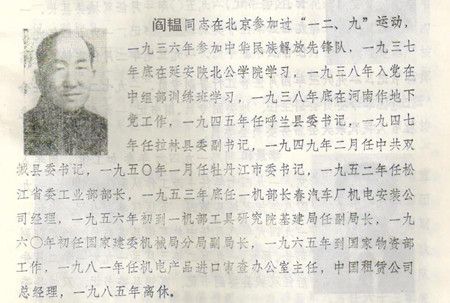 阎韫同志在北京参加过“一二、九”运动，
一九三六年参加中华民族解放先锋队，一九三七
年底在延安陕北公学院学习，一九三八年入党在
中组部训练班学习，一九三八年底在河南作地下
党工作，一九四五年任呼兰县委书记，一九四七
年任拉林县委副书记，一九四九年二月任中共双
城县委书记，一九五〇年一月任牡丹江市委书记，一九五二年任松
江省委工业部部长，一九五三年底任一机部长春汽车厂机电安装公
司经理，一九五六年初到一机部工具研究院基建局任副局长，一九
六〇年初任国家建委机械局分局副局长，一九六五年到国家物资部
工作，一九八一年任机电产品进口审查办公室主任，中国租赁公司
总经理，一九八五年离休。